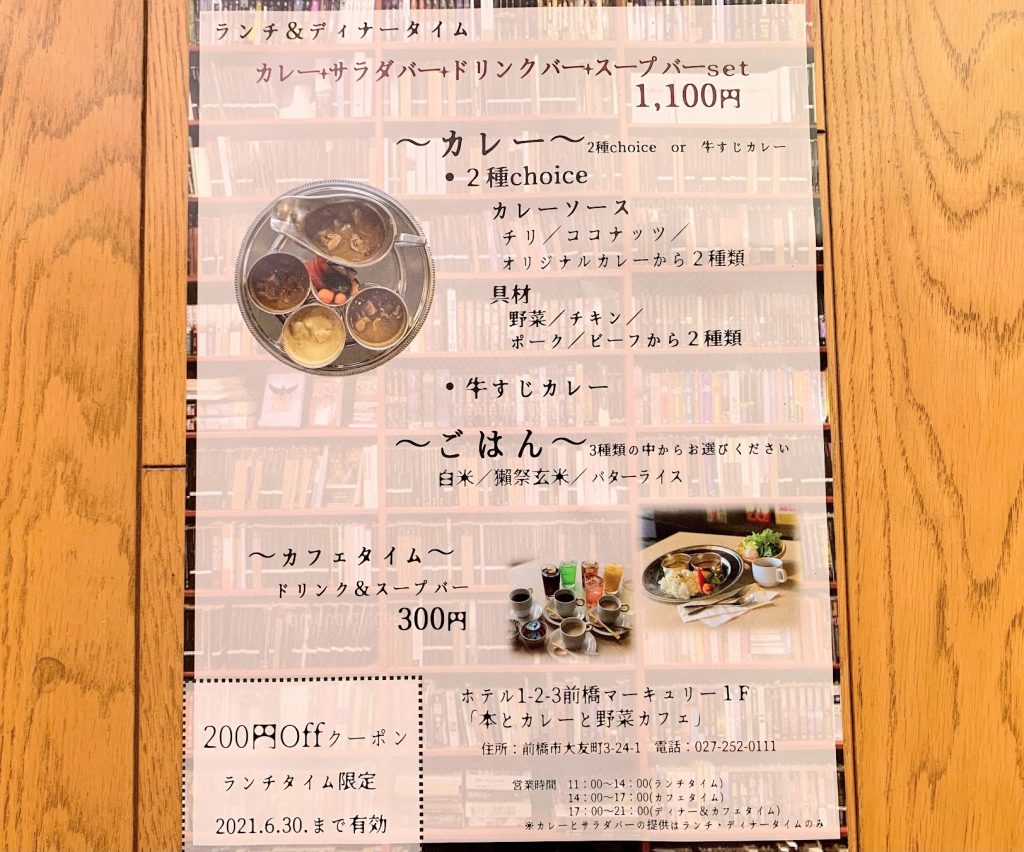 ランチ&ディナータイム
カレー+サラダバー+ドリンクバー+スープバーset
1,100円
〜カレー〜2種choice or 牛すじカレー
・2種choice
カレーソース
チリ／ココナッツ／
オリジナルカレーから2種類
具材
野菜／チキン／
ポーク／ビーフから2種類
・牛すじカレー
〜ごはん〜3種類の中からお選びください
白米／獺祭玄米／バターライス
〜カフェタイム〜
ドリンク&スープバー
300円
200円Offクーポン
ランチタイム限定
2021.6.30.まで有効
ホテル1-2-3前橋マーキュリー1F
「本とカレーと野菜カフェ」
住所：前橋市大友町3-24-1 電話：027-252-0111
営業時間 11：00〜14：00(ランチタイム)
14：00〜17：00(カフェタイム)
17：00〜21：00(ディナー&カフェタイム)
※カレーとサラダバーの提供はランチ・ディナータイムのみ